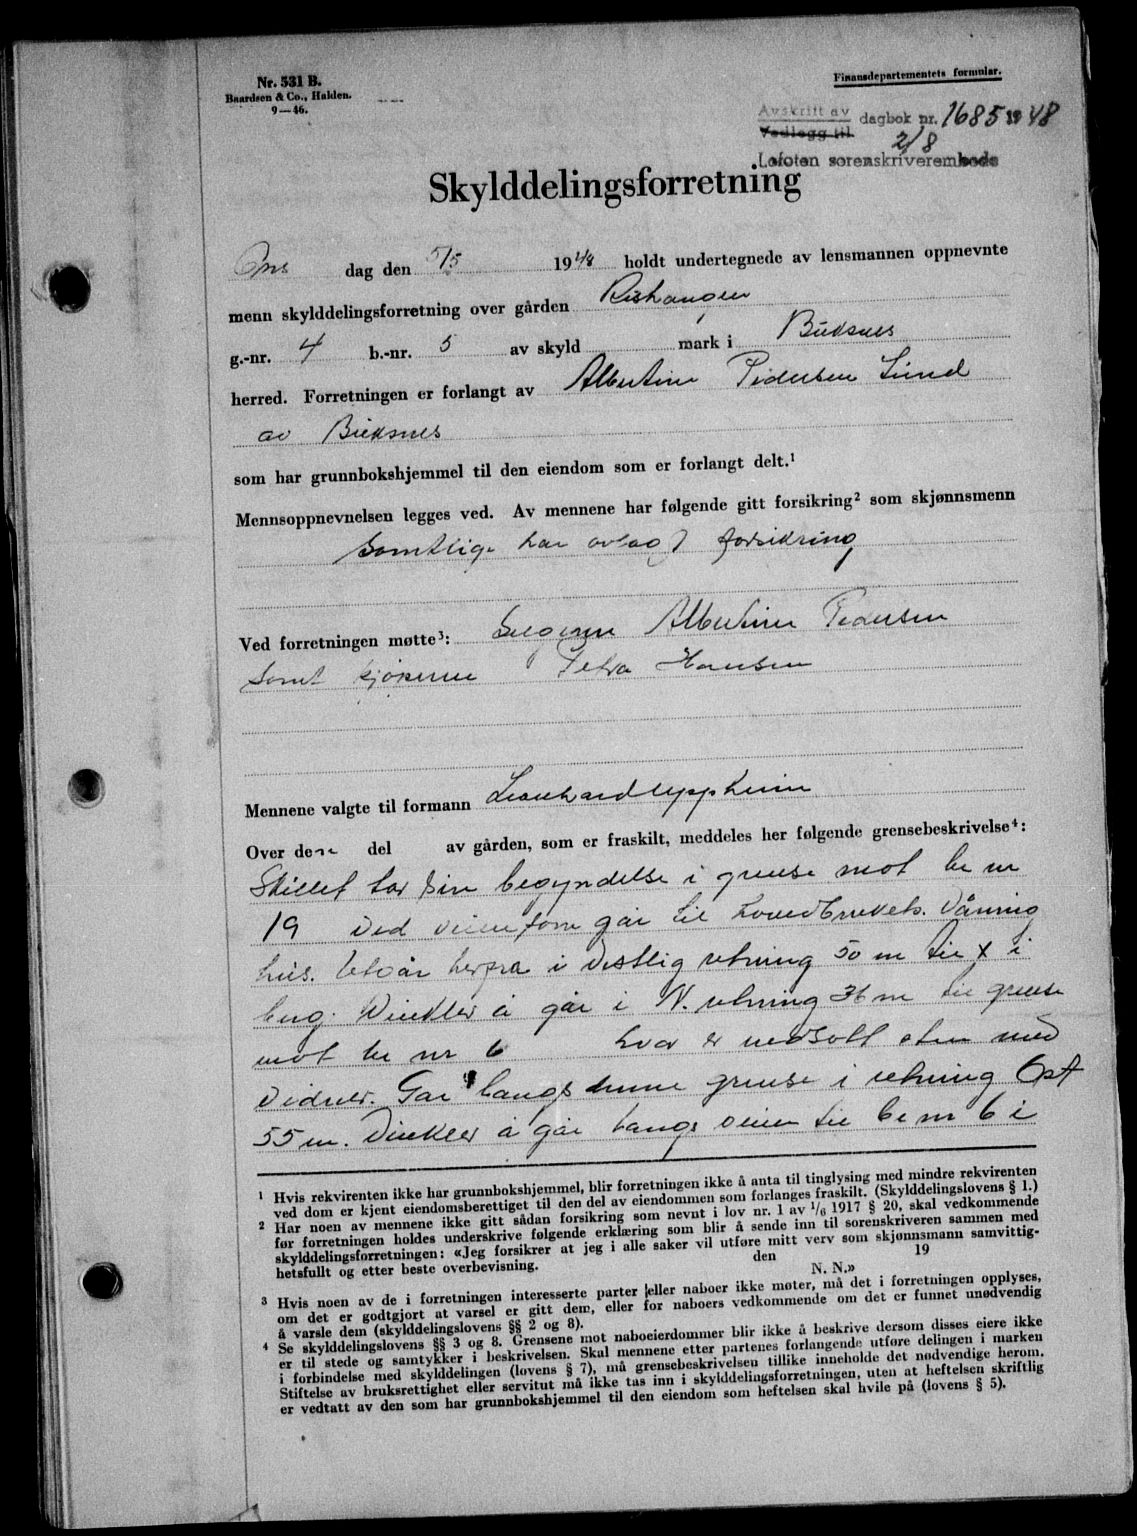 Nr. 531 B.
Baardsen & Co., Halden.
9—46.
Finansdepartementets formular.
Avskrift av
Vedlegg til
dagbok nr. 1685 1948
2/8
Lofoten sorenskriverembede
Skylddelingsforretning
Ons dag den 5/5 1948 holdt undertegnede av lensmannen oppnevnte
menn skylddelingsforretning over gården Rishaugen
g.-nr. 4 b.-nr. 5 av skyld mark i Buksnes
herred. Forretningen er forlangt av Albertine Pedersen Lund
av Buksnes
som har grunnbokshjemmel til den eiendom som er forlangt delt.¹
Mennsoppnevnelsen legges ved. Av mennene har følgende gitt forsikring² som skjønnsmenn
Samtlige har avlagt forsikring
Ved forretningen møtte³: Selgeren Albertine Pedersen
samt kjøperne Petra Hansen
Mennene valgte til formann Leonhard Uppheim
Over denne del av gården, som er fraskilt, meddeles her følgende grensebeskrivelse⁴:
Skillet tar sin begyndelse i grense mot br nr
19 ved veien som går til hovedbrukets våning
hus. Utgår herfra i vestlig retning 50 m til x i
berg. Vinkler å går i N. retning 36 m til grense
mot br nr 6 hvor er nedsatt sten med
vidner. Går langs denne grense i retning Øst
55 m. Vinkler å går langs veien til br nr 6 i
¹ Hvis rekvirenten ikke har grunnbokshjemmel, blir forretningen ikke å anta til tinglysing med mindre rekvirenten
ved dom er kjent eiendomsberettiget til den del av eiendommen som forlanges fraskilt. (Skylddelingslovens § 1.)
² Har noen av mennene ikke gitt sådan forsikring som nevnt i lov nr. 1 av 1/6 1917 § 20, skal vedkommende
før forretningen holdes underskrive følgende erklæring som blir å sende inn til sorenskriveren sammen med
skylddelingsforretningen: «Jeg forsikrer at jeg i alle saker vil utføre mitt verv som skjønnsmann samvittig-
hetsfullt og etter beste overbevisning. den 19
N. N.»
³ Hvis noen av de i forretningen interesserte parter eller naboer ikke møter, må det i forretningen opplyses,
om det er godtgjort at varsel er gitt dem, eller for naboers vedkommende om det er funnet unødvendig
å varsle dem (skylddelingslovens §§ 2 og 8).
⁴ Se skylddelingslovens §§ 3 og 8. Grensene mot naboeierdommer blir ikke å beskrive dersom disses eiere ikke
er til stede og samtykker i beskrivelsen. Skal mennene etter partenes forlangende utføre delingen i marken
i forbindelse med skylddelingen (lovens § 7), må grensebeskrivelsen tillike inneholde det nødvendige herom.
Stiftelse av bruksrettighet eller servitut må ikke tas inn i skylddelingsforretningen, uten at heftelsen skriftlig
er vedtatt av den som har grunnbokshjemmel til den eiendom som heftelsen skal hvile på (lovens § 5).